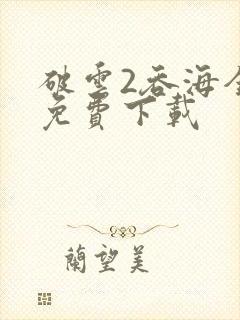 破雲2吞海全
免費下載
蘭望美